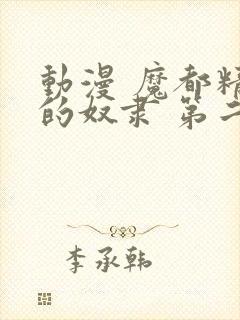 動漫 魔都精
的奴隶 第二
李承韩